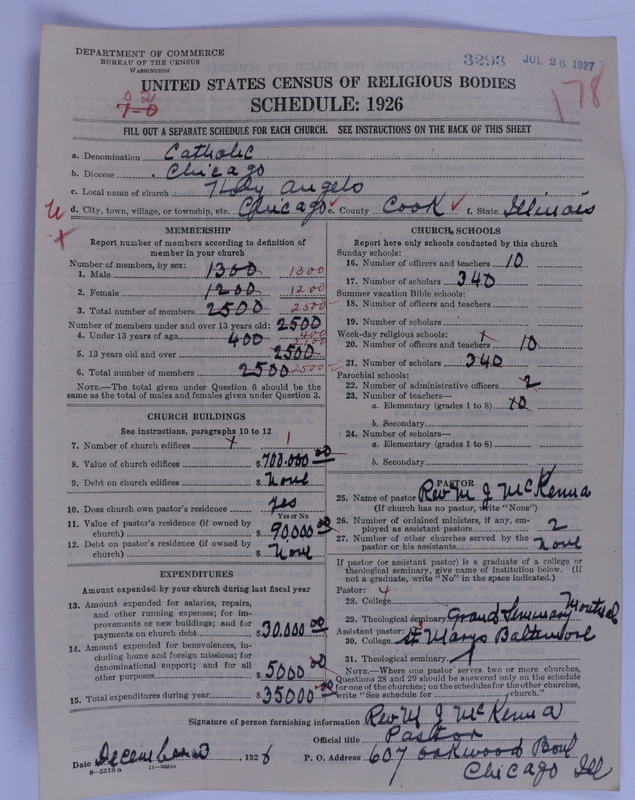 DEPARTMENT OF COMMERCE
BUREAU OF THE CENSUS
WASHINGTON
3293 JUL 26 1927
178
UNITED STATES CENSUS OF RELIGIOUS BODIES
SCHEDULE: 1926
0 2
7-0
FILL OUT A SEPARATE SCHEDULE FOR EACH CHURCH. SEE INSTRUCTIONS ON THE BACK OF THIS SHEET
a. Denomination Catholic
b. Diocese Chicago
c. Local name of church Holy Angels
d. City, town, village, or township, etc. Chicago e. County Cook f. State Illinois
MEMBERSHIP
Report number of members according to definition of
member in your church
Number of members, by sex:
1. Male 1300 1300
2. Female 1200 1200
3. Total number of members 2500 2500
Number of members under and over 13 years old: 2500
4. Under 13 years of age 400 400
5. 13 years old and over 2500
6. Total number of members 2500 2500
NOTE.—The total given under Question 6 should be the
same as the total of males and females given under Question 3.
CHURCH BUILDINGS
See instructions, paragraphs 10 to 12
7. Number of church edifices 1
8. Value of church edifices $700.000 00
9. Debt on church edifices $ None
10. Does church own pastor's residence yes
Yes or No
11. Value of pastor's residence (if owned by
church) $ 90,000 00
12. Debt on pastor's residence (if owned by
church) $ None
EXPENDITURES
Amount expended by your church during last fiscal year
13. Amount expended for salaries, repairs,
and other running expenses; for im-
provements or new buildings; and for
payments on church debt $30.000 00
14. Amount expended for benevolences, in-
cluding home and foreign missions; for
denominational support; and for all
other purposes $5000 00
15. Total expenditures during year $35000 00
CHURCH SCHOOLS
Report here only schools conducted by this church
Sunday schools:
16. Number of officers and teachers 10
17. Number of scholars 340
Summer vacation Bible schools:
18. Number of officers and teachers
19. Number of scholars
Week-day religious schools:
20. Number of officers and teachers 10
21. Number of scholars 340
Parochial schools:
22. Number of administrative officers 2
23. Number of teachers—
a. Elementary (grades 1 to 8) 10
b. Secondary
24. Number of scholars—
a. Elementary (grades 1 to 8)
b. Secondary
PASTOR
25. Name of pastor Rev M J McKenna
(If church has no pastor, write "None")
26. Number of ordained ministers, if any, em-
ployed as assistant pastors 2
27. Number of other churches served by the
pastor or his assistants None
If pastor (or assistant pastor) is a graduate of a college or
theological seminary, give name of institution below. (If
not a graduate, write "No" in the space indicated.)
Pastor: 4
28. College
29. Theological seminary Grand Seminary Montreal
Assistant pastor:
30. College St Marys Baltimore
31. Theological seminary
NOTE.—Where one pastor serves two or more churches,
Questions 28 and 29 should be answered only on the schedule
for one of the churches; on the schedules for the other churches,
write "See schedule for church."
Signature of person furnishing information Rev M J McKenna
Official title Pastor
Date December 3, 1926 P. O. Address 607 Oakwood Boul
8-5518a
Chicago Ill